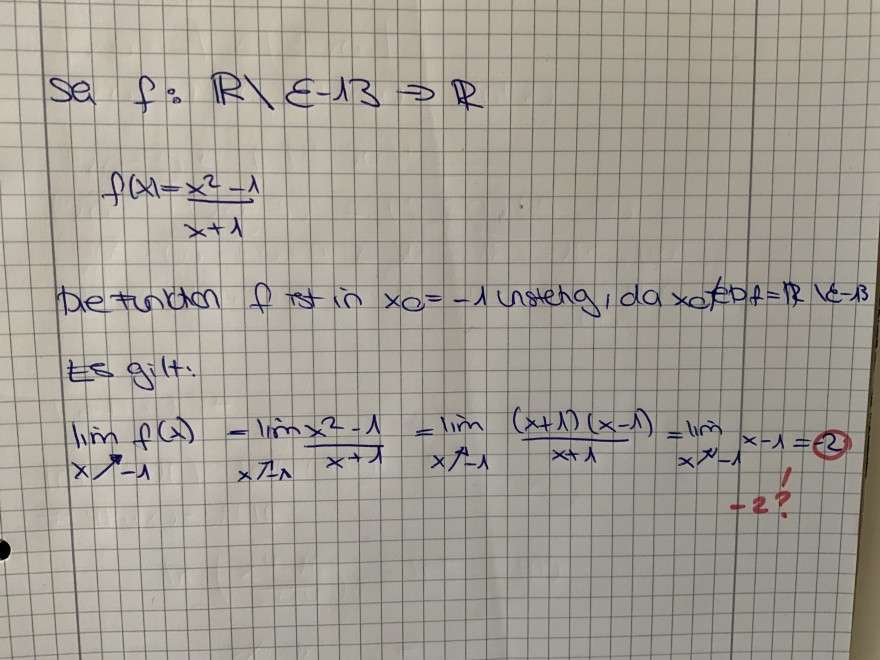 Sei f: ℝ\{-1} → ℝ
f(x) = x² - 1 / x + 1
Die Funktion f ist in x0 = -1 unstetig, da x0 ∉ Df = ℝ \{-1}
Es gilt:
lim x↗-1 f(x) = lim x↗-1 x² - 1 / x + 1 = lim x↗-1 (x+1)(x-1) / x+1 = lim x↗-1 x - 1 = -2
-2?